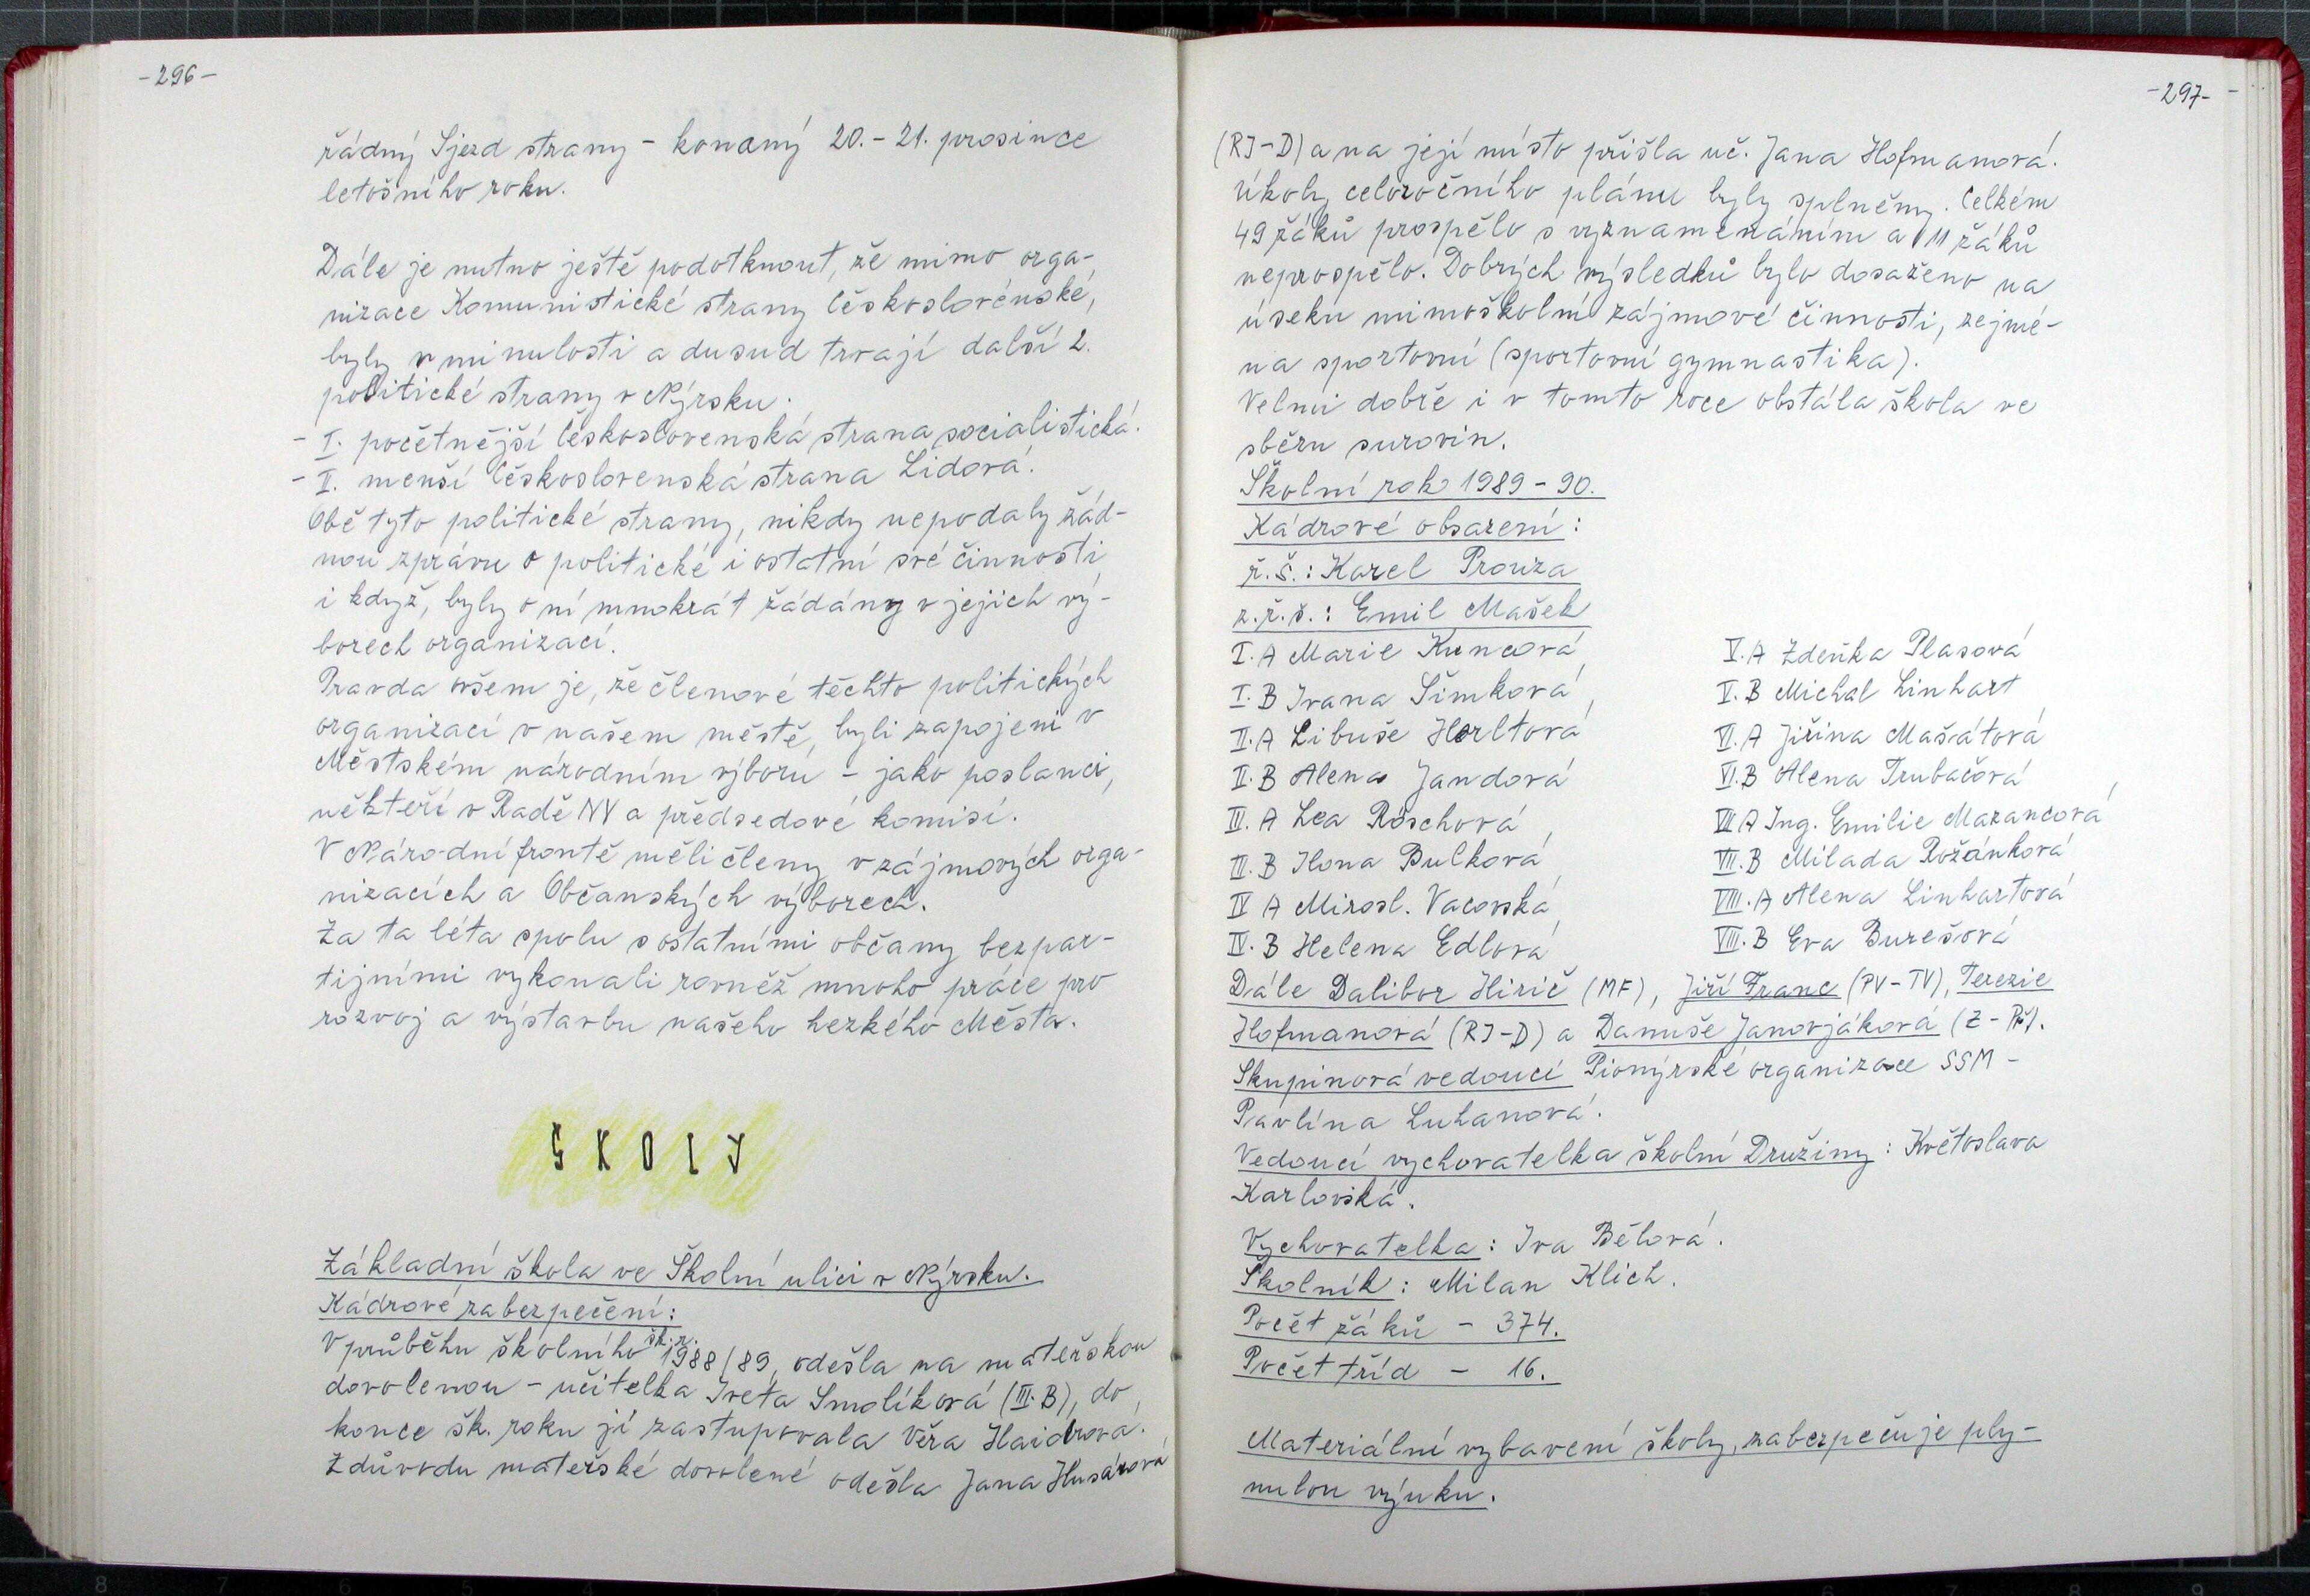 -296-
řádný Sjezd strany - konaný 20.-21. prosince
letošního roku.
Dále je nutno ještě podotknout, že mimo orga-
nizace Komunistické strany Československé,
byly v minulosti a dusud trvají další 2.
politické strany v Nýrsku.
- I. početnější Československá strana socialistická.
- II. menší Československá strana Lidová.
Obě tyto politické strany, nikdy nepodaly žád-
nou zprávu o politické i ostatní své činnosti
i když, byly o ní mnokrát žádány v jejich vý-
borech organizací.
Pravda ovšem je, že členové těchto politických
organizací v našem městě, byli zapojeni v
Městském národním výboru - jako poslanci,
někteří v Radě NV a předsedové komisí.
V Národní frontě měli členy v zájmových orga-
nizacích a Občanských výborech.
Za ta léta spolu s ostatními občany bezpar-
tijními vykonali rovněž mnoho práce pro
rozvoj a výstavbu našeho hezkého Města.
ŠKOLY
Základní škola ve Školní ulici v Nýrsku.
Kádrové zabezpečení:
V průběhu školního šk.r. 1988/89, odešla na mateřskou
dovolenou - učitelka Iveta Smolíková (III.B), do
konce šk. roku jí zastupovala Věra Haidrová.
Z důvodu mateřské dovolené odešla Jana Husárová
-297-
(RJ-D) a na její místo přišla uč. Jana Hofmanová.
Úkoly celoročního plánu byly splněny. Celkem
49 žáků prospělo s vyznamenáním a 11 žáků
neprospělo. Dobrých výsledků bylo dosaženo na
úseku mimoškolní zájmové činnosti, zejmé-
na sportovní (sportovní gymnastika).
Velmi dobře i v tomto roce obstála škola ve
sběru surovin.
Školní rok 1989-90.
Kádrové obsazení:
ř.š.: Karel Prouza
z.ř.š.: Emil Mašek
I.A Marie Kuncová
I.B Ivana Šimková
II.A Libuše Herltová
II.B Alena Jandová
III.A Lea Röschová
III.B Ilona Bulková
IV A Mirosl. Vacovská
IV.B Helena Edlová
V.A Zdeňka Plasová
V.B Michal Linhart
VI.A Jiřina Mašátová
VI.B Alena Trubačová
VII A Ing. Emilie Mazancová
VII.B Milada Rožánková
VIII.A Alena Linhartová
VIII.B Eva Burešová
Dále Dalibor Hirič (MF), Jiří Franc (PV-TV), Terezie
Hofmanová (RJ-D) a Danuše Janovjáková (Z-Př).
Skupinová vedoucí Pionýrské organizace SSM -
Pavlína Luhanová.
Vedoucí vychovatelka školní Družiny: Květoslava
Karlovská.
Vychovatelka: Iva Bělová.
Školník: Milan Klich.
Počet žáků - 374.
Počet tříd - 16.
Materiální vybavení školy, zabezpečuje ply-
nulou výuku.